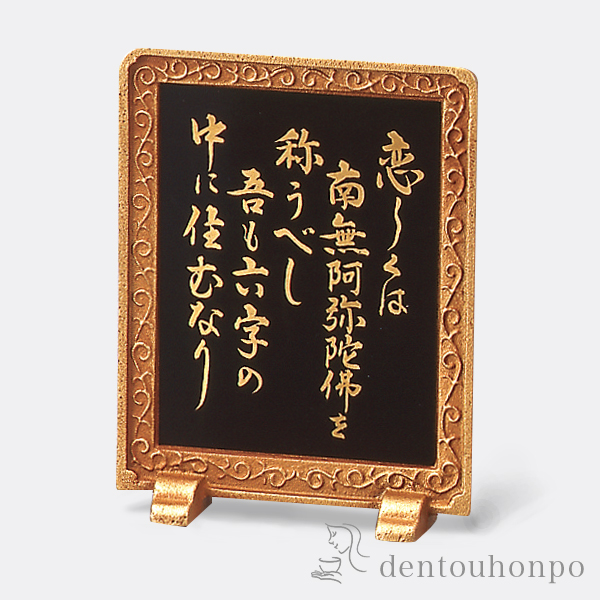 恋しくは
南無阿弥陀佛を
称うべし
吾も六字の
中に住むなり
dentouhonpo